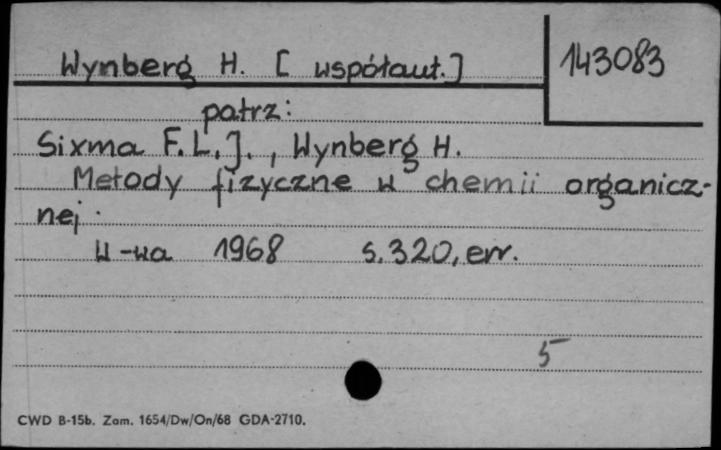 Wynberg H. [współaut.]
143083
patrz:
Sixma F.L.J., Wynberg H.
Metody fizyczne w chemii organicz-
nej.
W-wa 1968 s. 320, err.
5
CWD B-15b. Zam. 1654/Dw/On/68 GDA-2710.